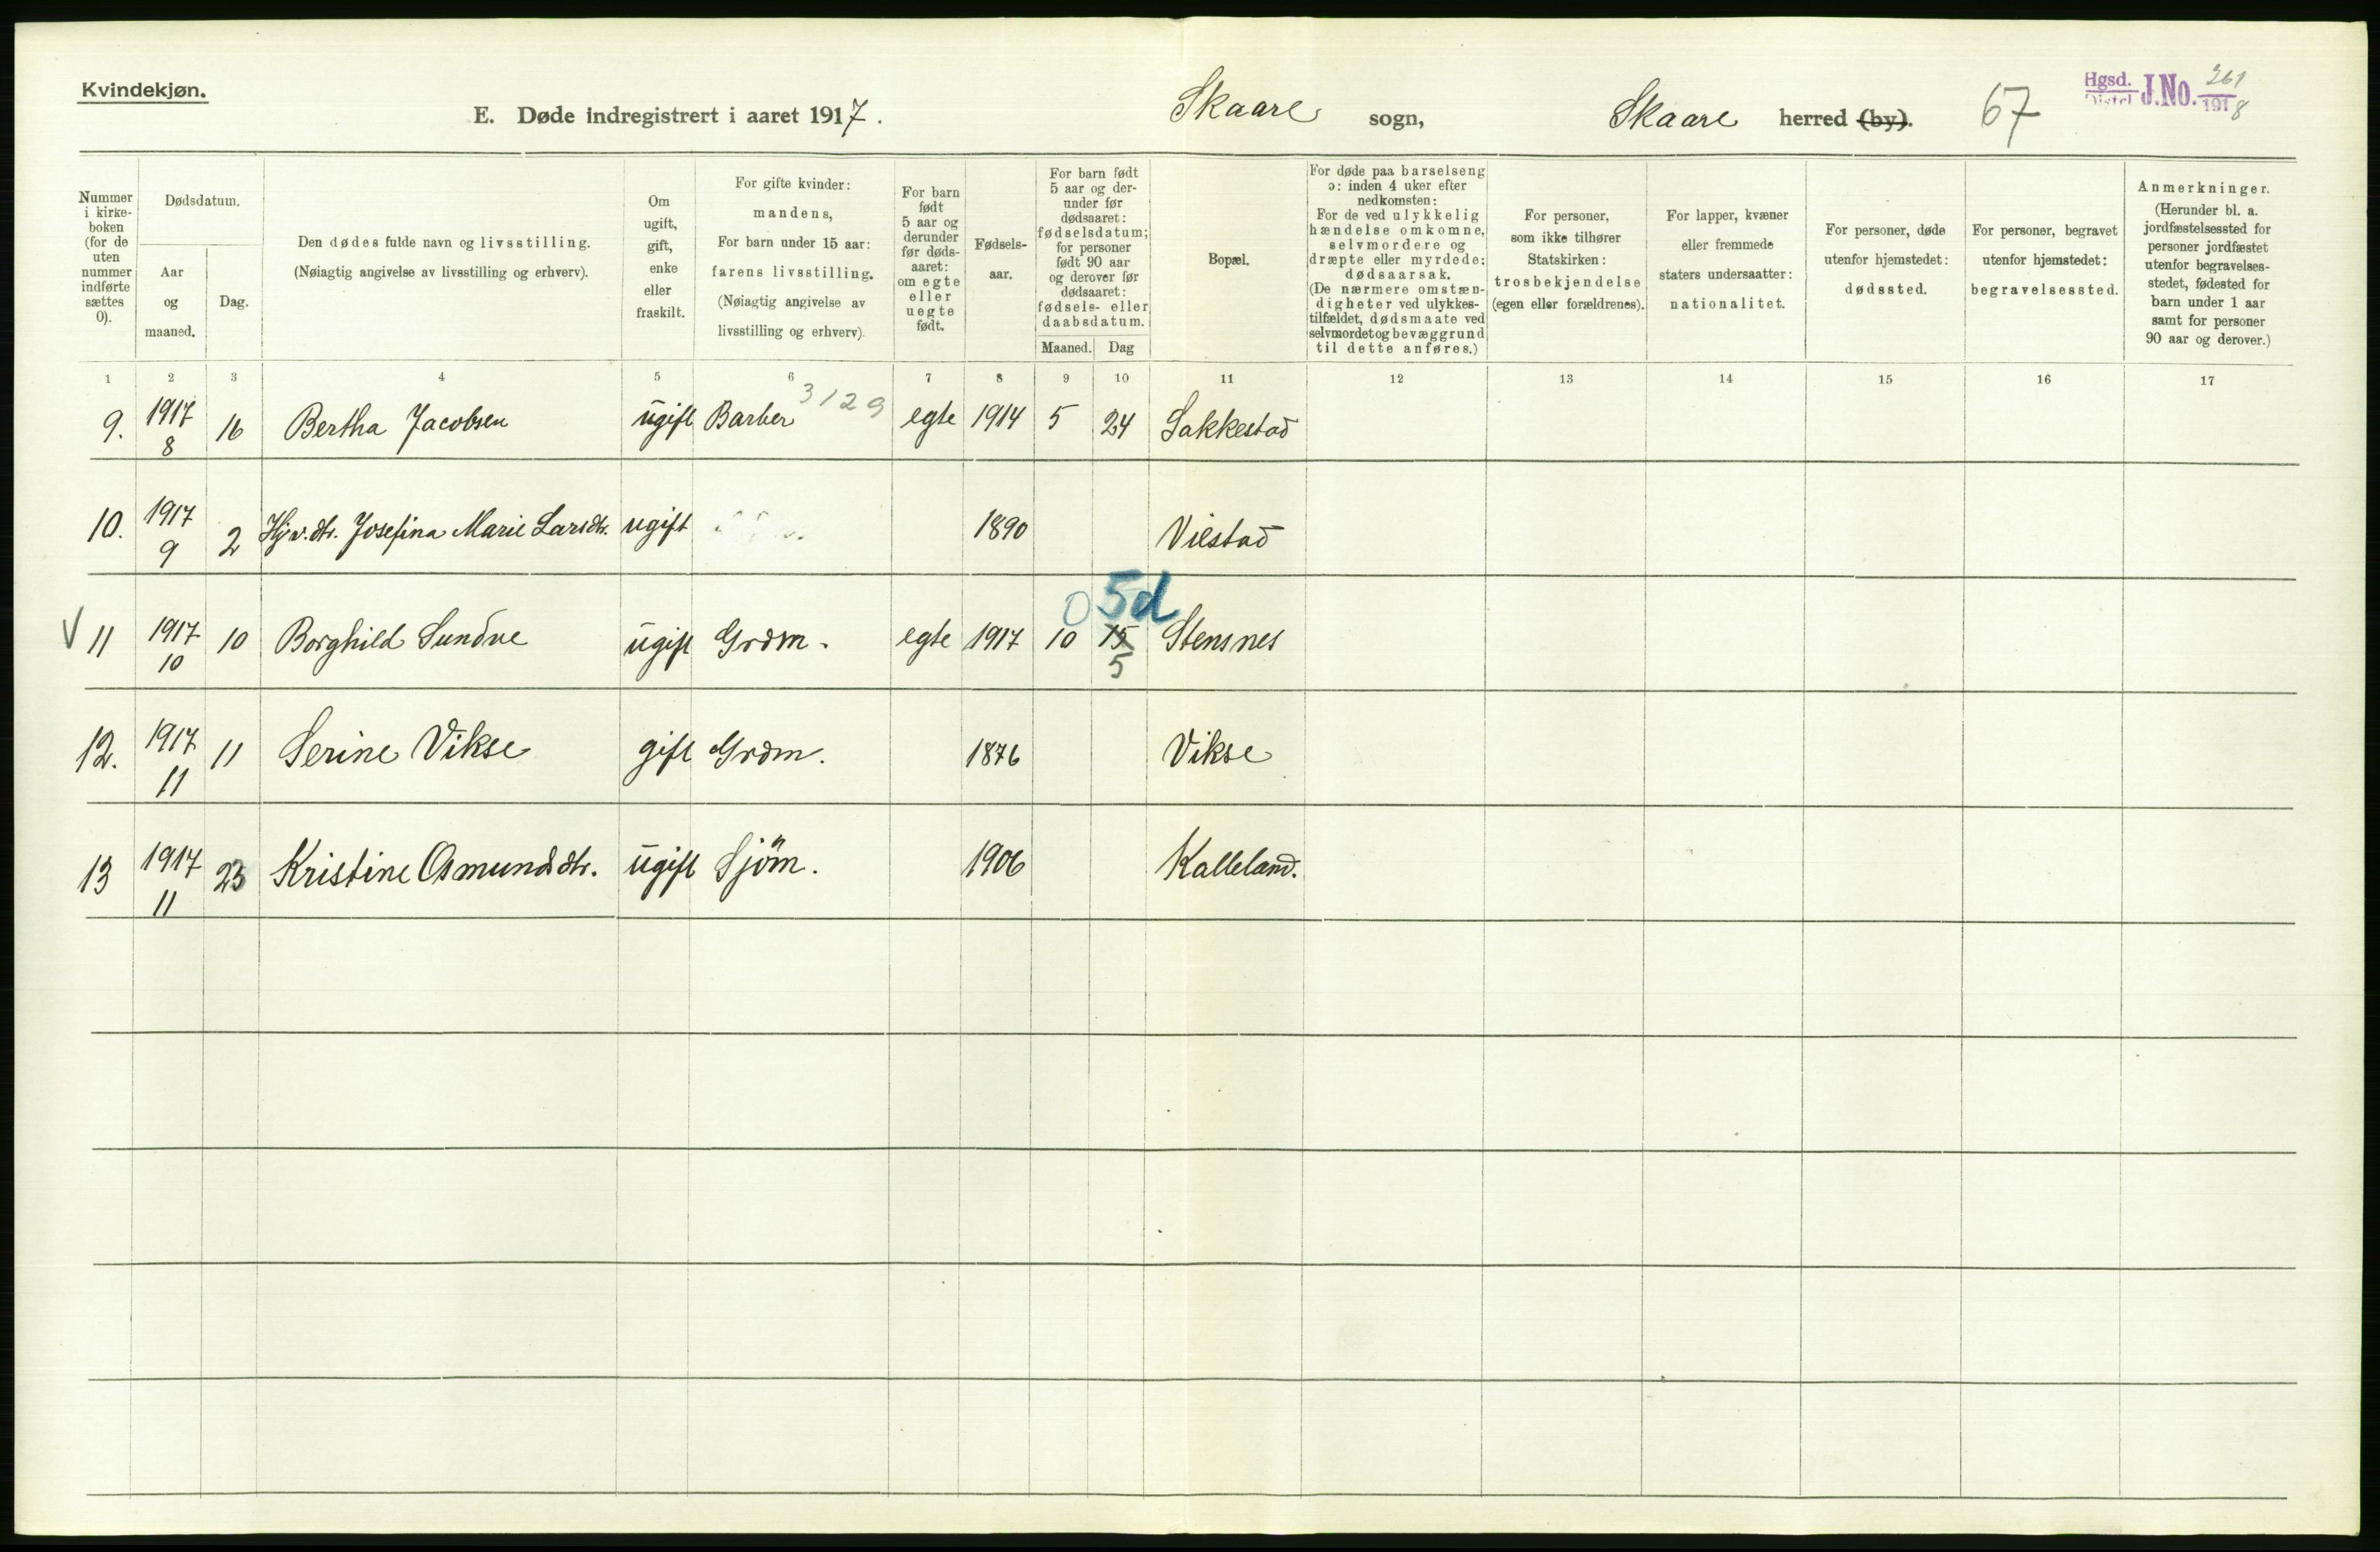 Kvindekjøn.
E. Døde indregistrert i aaret 1917. Skaare sogn, Skaare herred (by). 67 Hgsd. J.No. 261 1918
Nummer i kirke- boken (for de uten nummer indførte sættes 0).
Dødsdatum.
Aar og maaned.
Dag.
Den dødes fulde navn og livsstilling.
(Nøiagtig angivelse av livsstilling og erhverv).
Om ugift, gift, enke eller fraskilt.
For gifte kvinder: mandens, For barn under 15 aar: farens livsstilling. (Nøiagtig angivelse av livsstilling og erhverv).
For barn født 5 aar og derunder før døds- aaret: om egte eller uegte født.
Fødsels- aar.
For barn født 5 aar og der- under før dødsaaret: fødselsdatum; for personer født 90 aar og derover før dødsaaret: fødsels- eller daabsdatum.
Maaned. Dag
Bopæl.
For døde paa barselseng ɔ: inden 4 uker efter nedkomsten: For de ved ulykkelig hændelse omkomne, selvmordere og dræpte eller myrdede: dødsaarsak. (De nærmere omstæn- digheter ved ulykkes- tilfældet, dødsmaate ved selvmordet og bevæggrund til dette anføres.)
For personer, som ikke tilhører Statskirken: trosbekjendelse (egen eller forældrenes).
For lapper, kvæner eller fremmede staters undersaatter: nationalitet.
For personer, døde utenfor hjemstedet: dødssted.
For personer, begravet utenfor hjemstedet: begravelsessted.
Anmerkninger. (Herunder bl. a. jordfæstelsessted for personer jordfæstet utenfor begravelses- stedet, fødested for barn under 1 aar samt for personer 90 aar og derover.)
1 2 3 4 5 6 7 8 9 10 11 12 13 14 15 16 17
3129
9. 1917 8 16 Bertha Jacobsen ugift Barber egte 1914 5 24 Sakkestad
10. 1917 9 2 Hjv. dtr. Josefina Marie Larsdtr. ugift 1890 Vilstad
0 5d
V 11 1917 10 10 Borghild Sundve ugift Grdm. egte 1917 10 15 Stensnes
5
12. 1917 11 11 Serine Vikse gift Grdm. 1876 Vikse
13 1917 11 23 Kristine Osmundsdtr. ugift Sjöm. 1906 Kalleland.